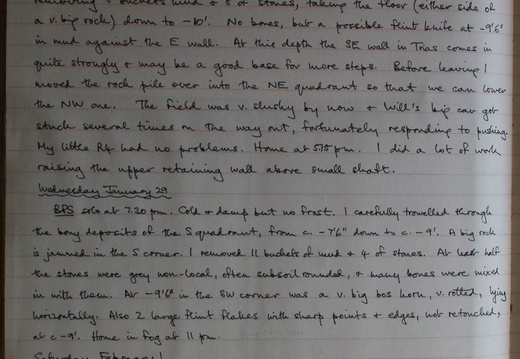 removing 4 buckets mud & 8 of stones, taking the floor (either side of
a v. big rock) down to -10'. No bones, but a possible flint knife at -9'6"
in mud against the E wall. At this depth the SE wall in Trias comes in
quite strongly & may be a good base for more steps. Before leaving I
moved the rock pile over into the NE quadrant so that we can lower
the NW one. The field was v. slushy by now & Will's big car got
stuck several times on the way out, fortunately responding to pushing.
My little R4 had no problems. Home at 5.15 pm. I did a lot of work
raising the upper retaining wall above small shaft.
Wednesday January 29
BPS solo at 7.30 pm. Cold & damp but no frost. I carefully trowelled through
the bony deposits of the S quadrant, from c. -7'6" down to c. -9'. A big rock
is jammed in the S corner. I removed 11 buckets of mud & 4 of stones. At least half
the stones were grey non-local, often subsoil rounded, & many bones were mixed
in with them. At -9'6" in the SW corner was a v. big bos horn, v. rotted, lying
horizontally. Also 2 large flint flakes with sharp points & edges, not retouched,
at c -9'. Home in fog at 11 pm.
Saturday February 1